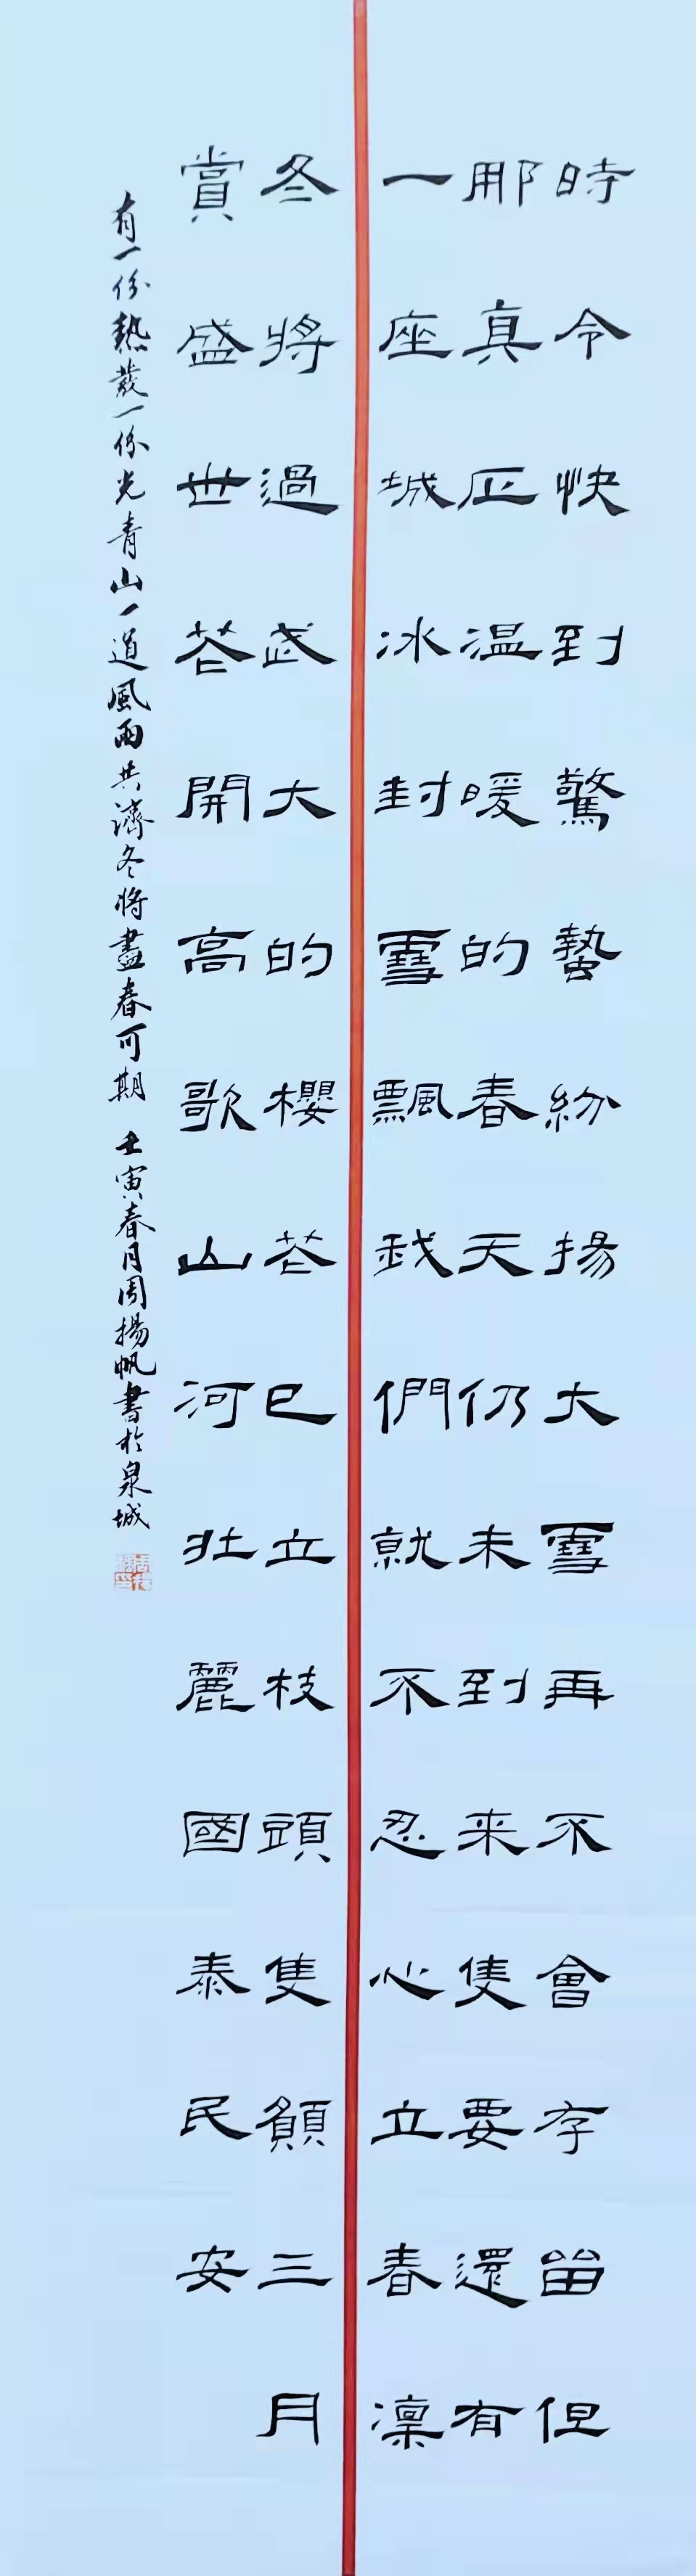 時令快到驚蟄紛揚大雪再不會存留但
那真正温暖的春天仍未到来隻要還有
一座城冰封雪飄我們就不忍心立春凜
冬將過武大的櫻花已立枝頭隻願三月
賞盛世花開高歌山河壯麗國泰民安
有一份熱發一份光青山一道風雨共濟冬將盡春可期 壬寅春月周揚帆書於泉城